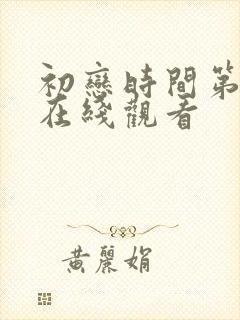 初戀時間第
在綫觀看
黃麗娟